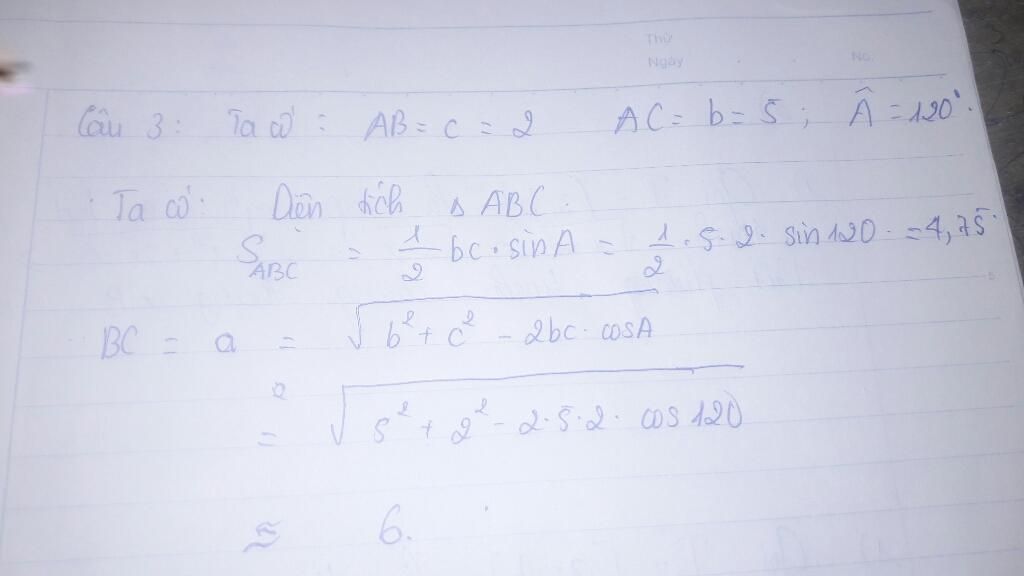 Thứ
Ngày . . No.
Câu 3: Ta có: AB = c = 2 AC = b = 5; Â = 120°.
Ta có: Diện tích Δ ABC.
S_ABC = 1/2 bc · sinA = 1/2 · 5 · 2 · sin120 · = 4,75
BC = a = √(b² + c² - 2bc · cosA)
= √(5² + 2² - 2·5·2· cos120)
≈ 6.